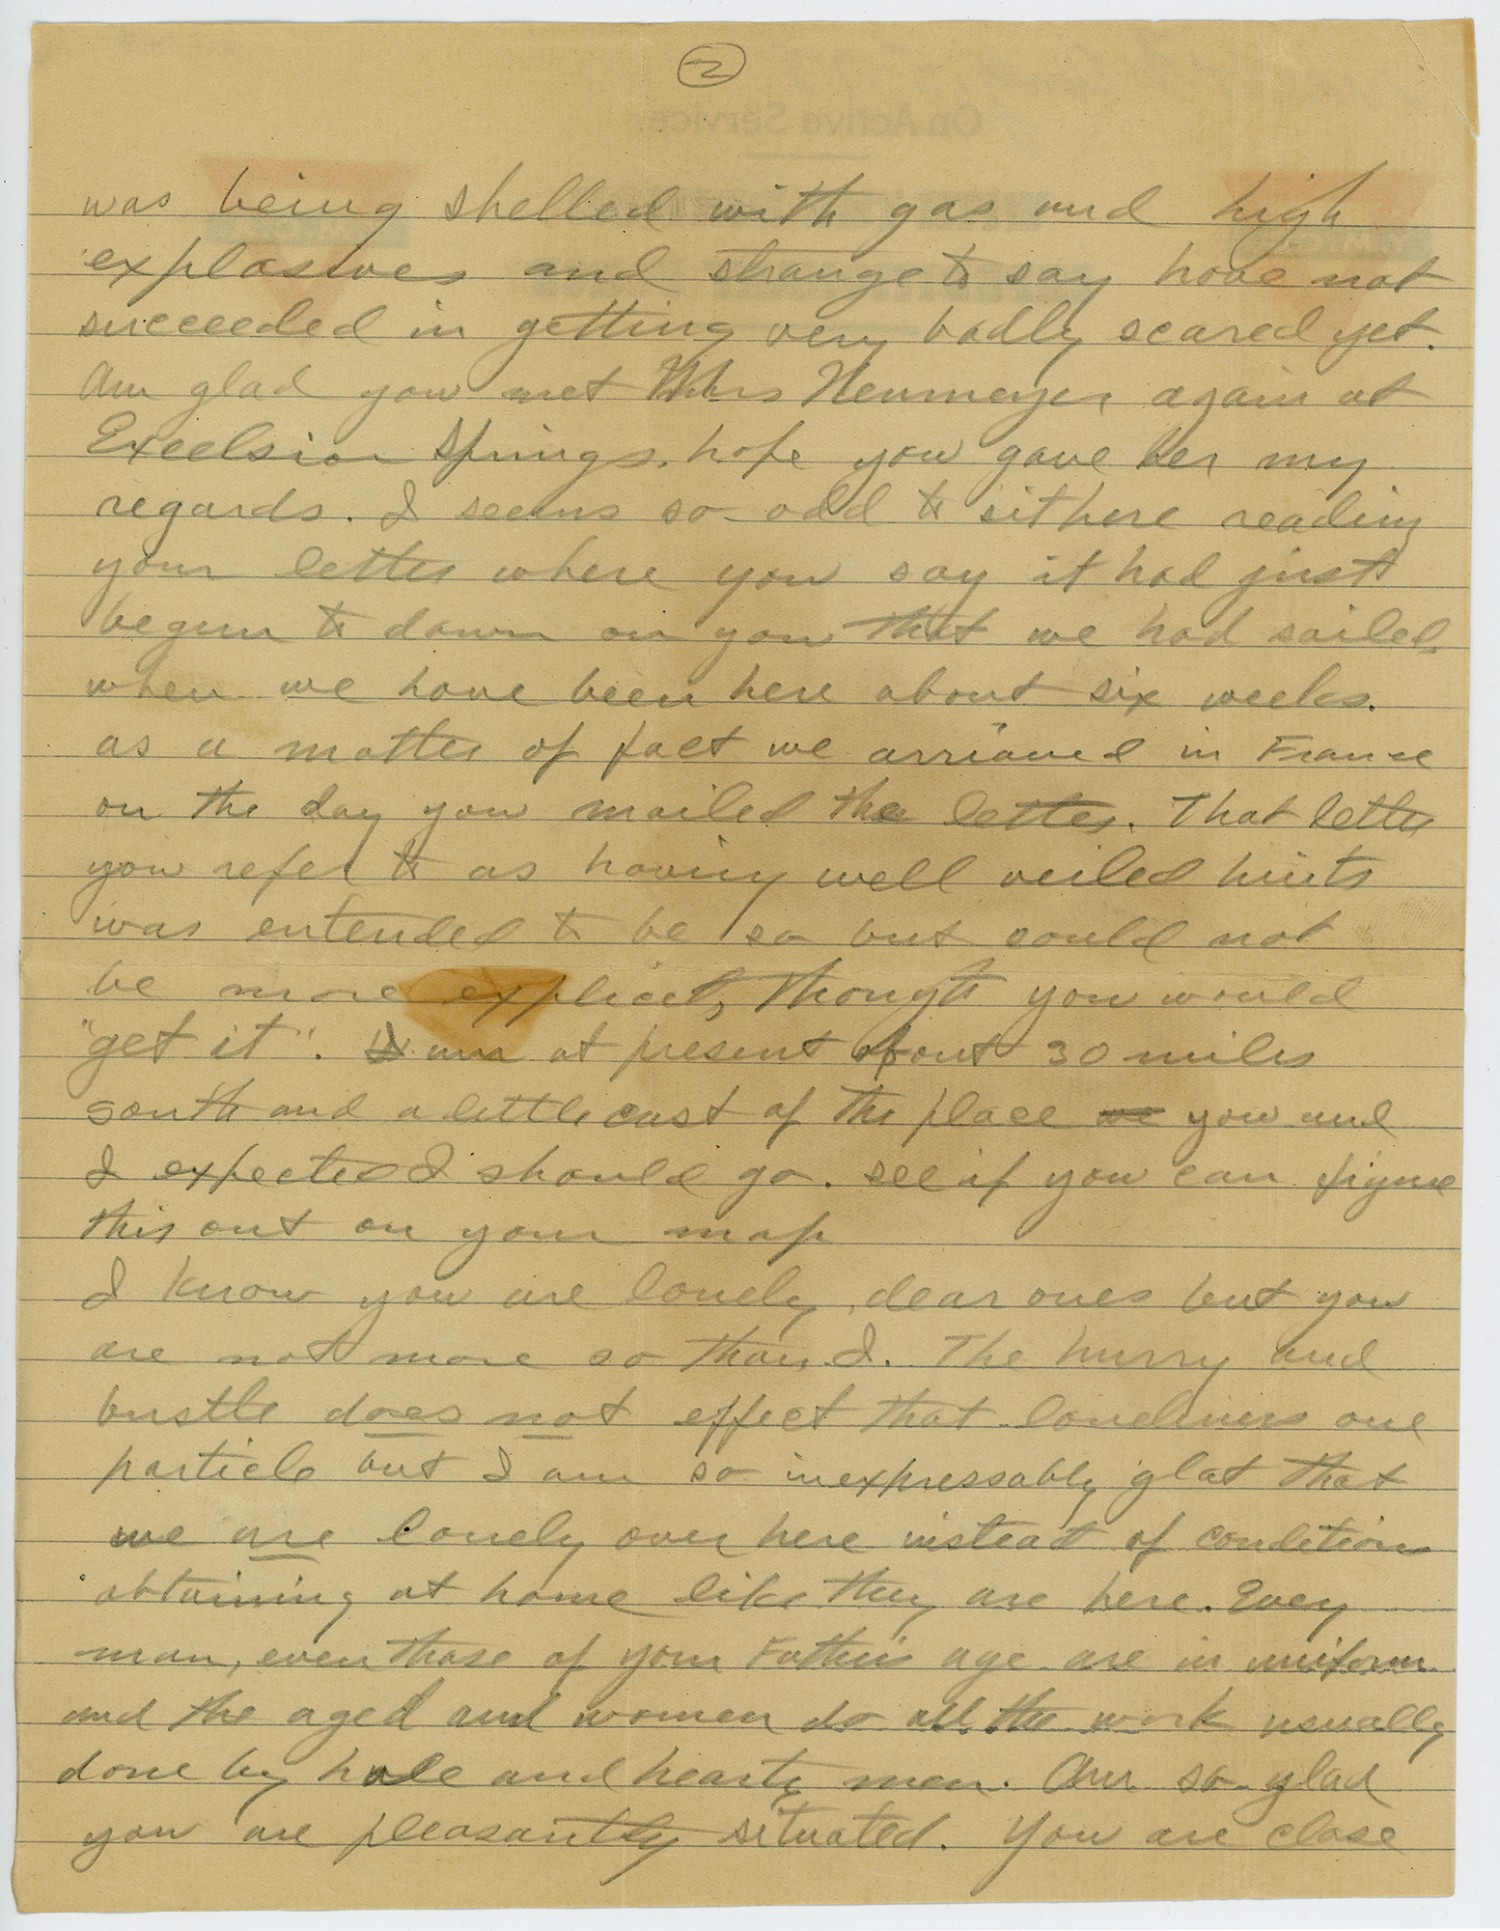 2
On Active Service
was being shelled with gas and high
explosives and strange to say have not
succeeded in getting very badly scared yet.
Am glad you met Mrs Neumeyer again at
Excelsior Springs, hope you gave her my
regards. I seems so odd to sit here reading
your letter where you say it had just
begun to dawn on you that we had sailed
when we have been here about six weeks.
as a matter of fact we arrived in France
on the day you mailed the letter. That letter
you refer to as having well veiled hints
was entended to be so but could not
be more explicit, thought you would
"get it". am at present about 30 miles
south and a little east of the place we you and
I expected I should go. see if you can figure
this out on your map
I know you are lonely, dear ones but you
are not more so than I. The hurry and
bustle does not effect that loneliness one
particle but I am so inexpressably glat that
we are lonely over here instead of conditions
obtaining at home like they are here. Every
man, even those of your Father's age are in uniform
and the aged and women do all the work usually
done by hale and hearty men. Am so glad
you are pleasantly situated. You are close